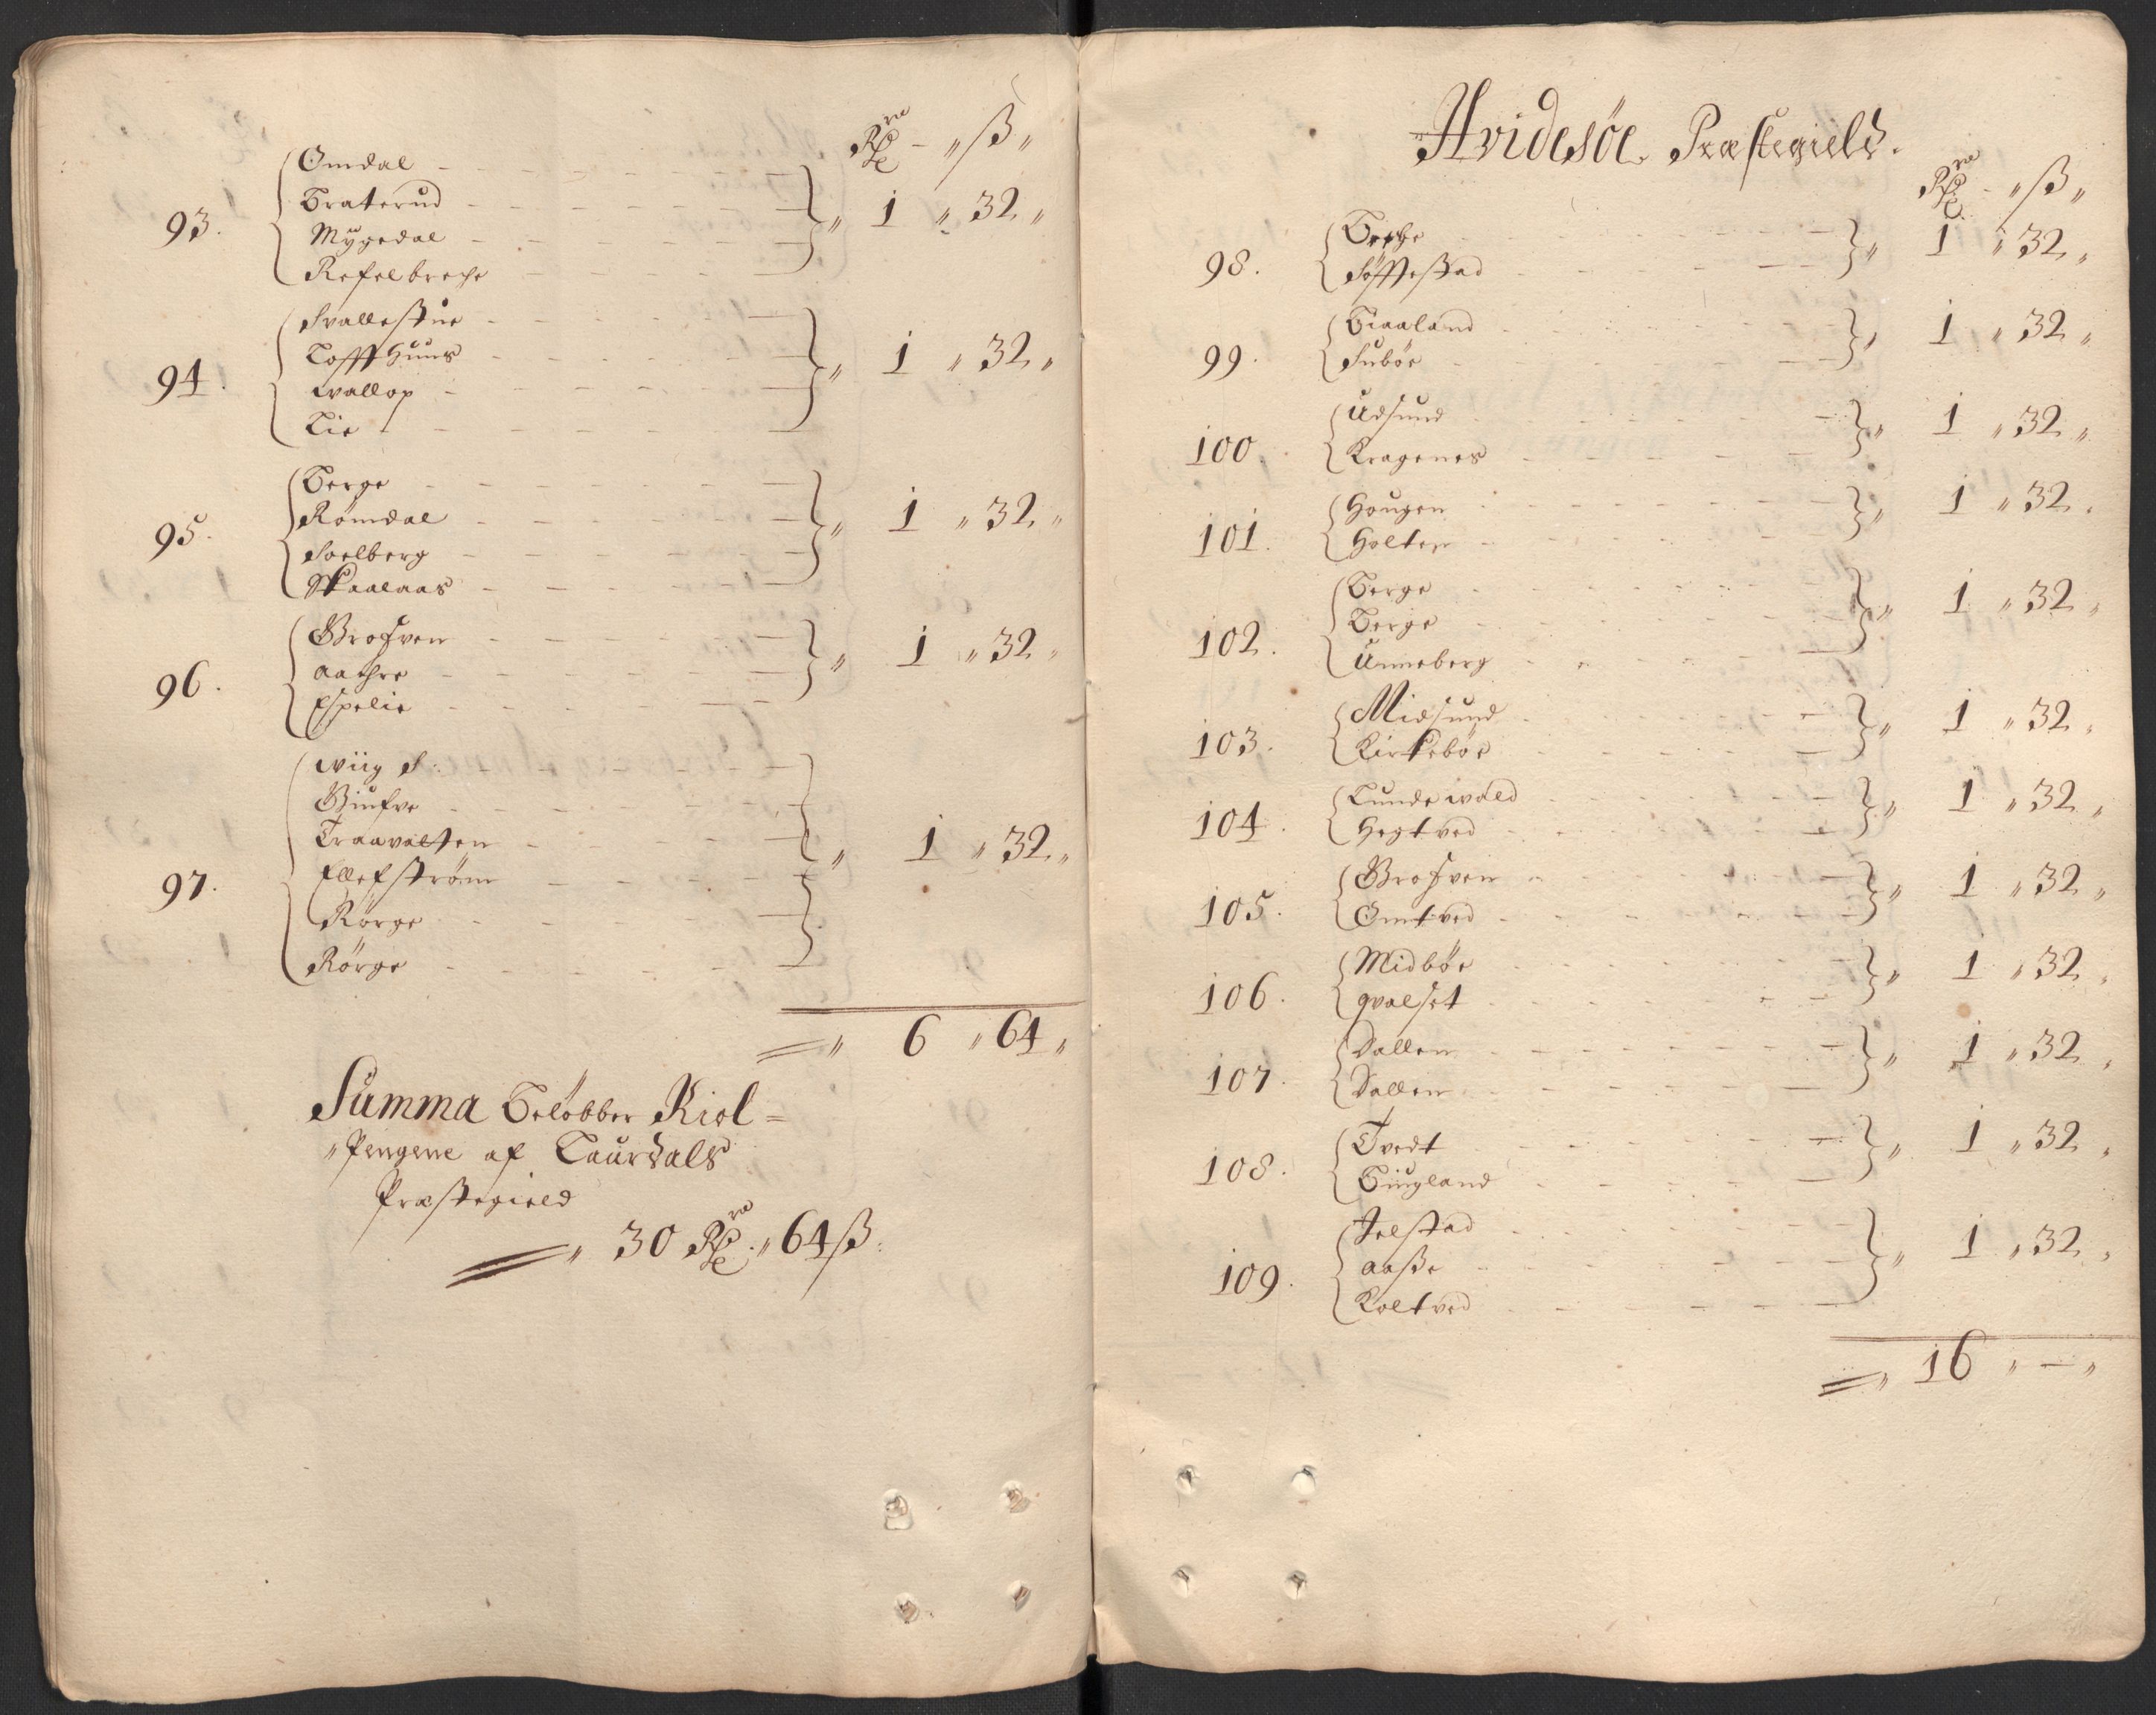 Rdr - „ ß „
93. Omdal
Braterud
Mÿgedal
Refselbreche
„ 1 „ 32 „
94. Svallestue
Loffthuus
wallop
Lie
„ 1 „ 32 „
95. Berge
Rømdal
Soelberg
Skaalaas
„ 1 „ 32 „
96. Grosven
aachre
Espelie
„ 1 „ 32 „
97. wiig S:
Giufve
Traavatten
Ellefstrøm
Rørge
Rørge
„ 1 „ 32 „
„ 6 „ 64 „
Summa Beløbber Kiol =
„Pengene af Laurdals
Præstegield
„ 30 Rdr „ 64 ß:
Hvidesöe Præstegield.
Rdr - „ ß „
98. Søftestad
„ 1 „ 32 „
99. Biaaland
Subøe
„ 1 „ 32 „
100. Udsund
Kragenes
„ 1 „ 32 „
101. Hougen
Holten
„ 1 „ 32 „
102. Berge
Berge
Unneberg
„ 1 „ 32 „
103. Midsund
Kirkebøe
„ 1 „ 32 „
104. Lunde wald
Hegtved
„ 1 „ 32 „
105. Grosven
Omtved
„ 1 „ 32 „
106. Midbøe
qvalset
„ 1 „ 32 „
107. Dallen
Dallen
„ 1 „ 32 „
108. Tvedt
Biugland
„ 1 „ 32 „
109. Selstad
aaße
Koltved
„ 1 „ 32 „
„ 16 „ — „